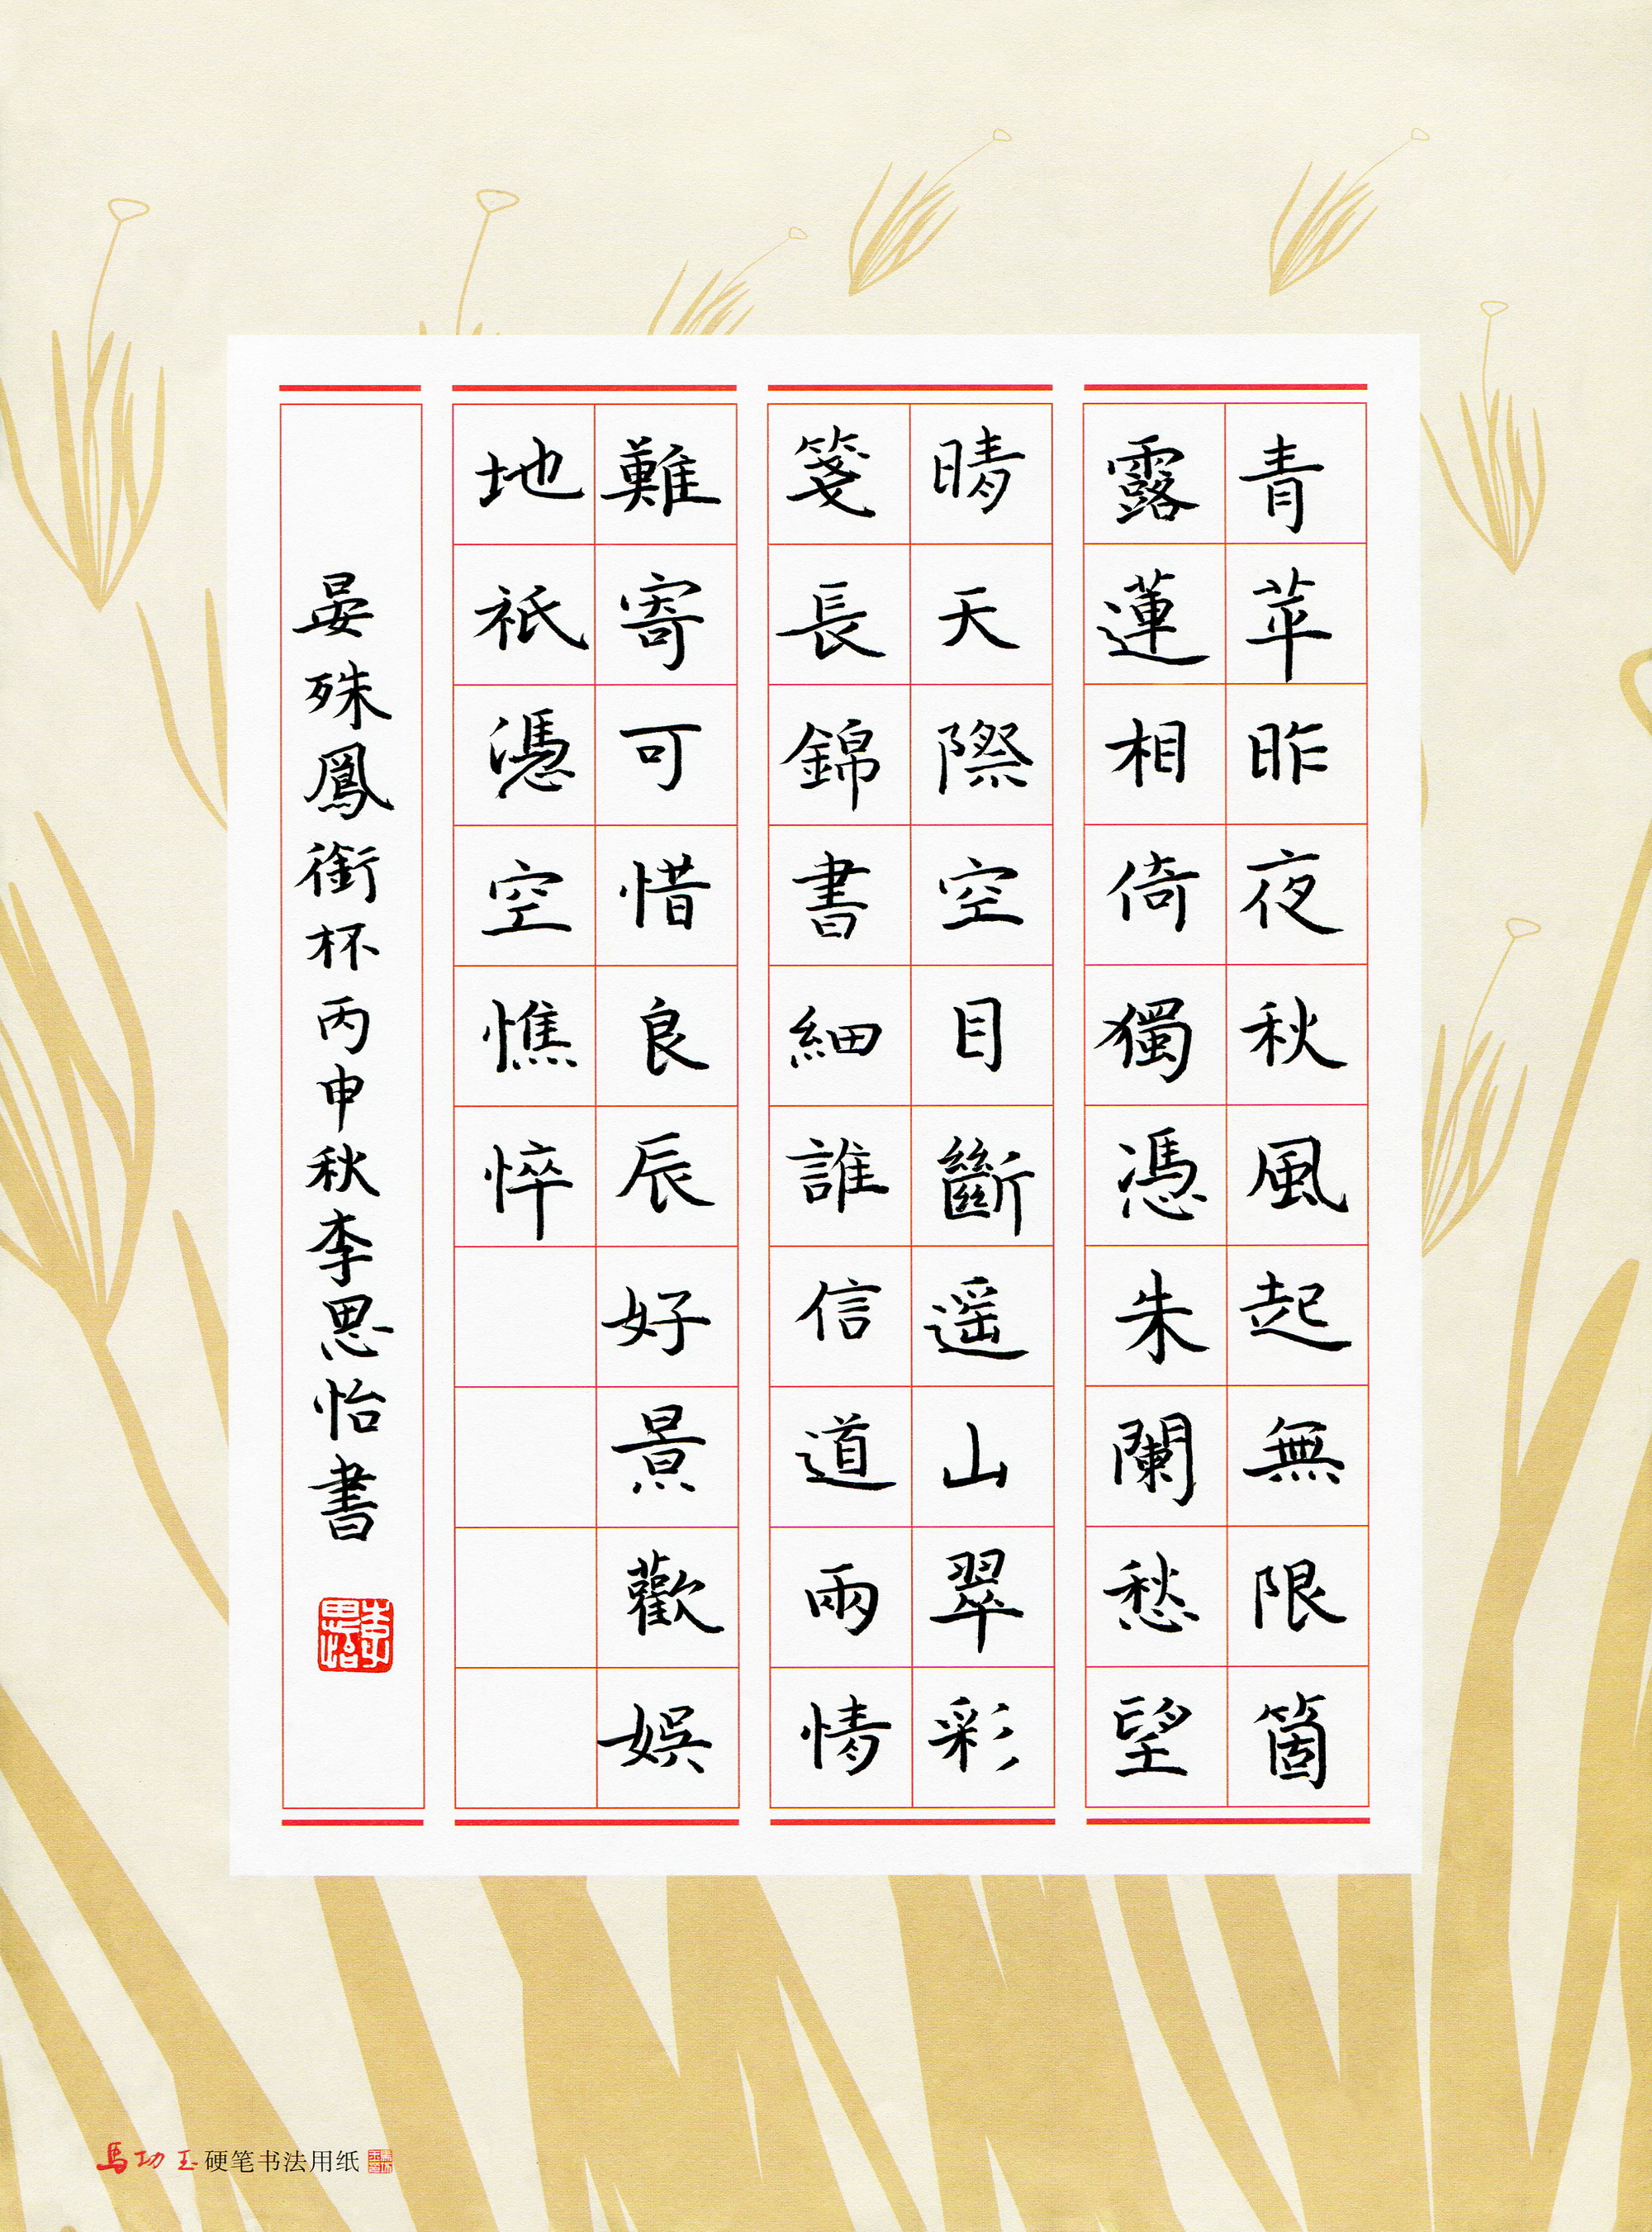 青苹昨夜秋風起無限箇
露蓮相倚獨憑朱闌愁望
晴天際空目斷遥山翠彩
箋長錦書細誰信道兩情
難寄可惜良辰好景歡娛
地祇憑空憔悴
晏殊鳳銜杯丙申秋李思怡書
李思怡
馬功玉硬笔书法用纸